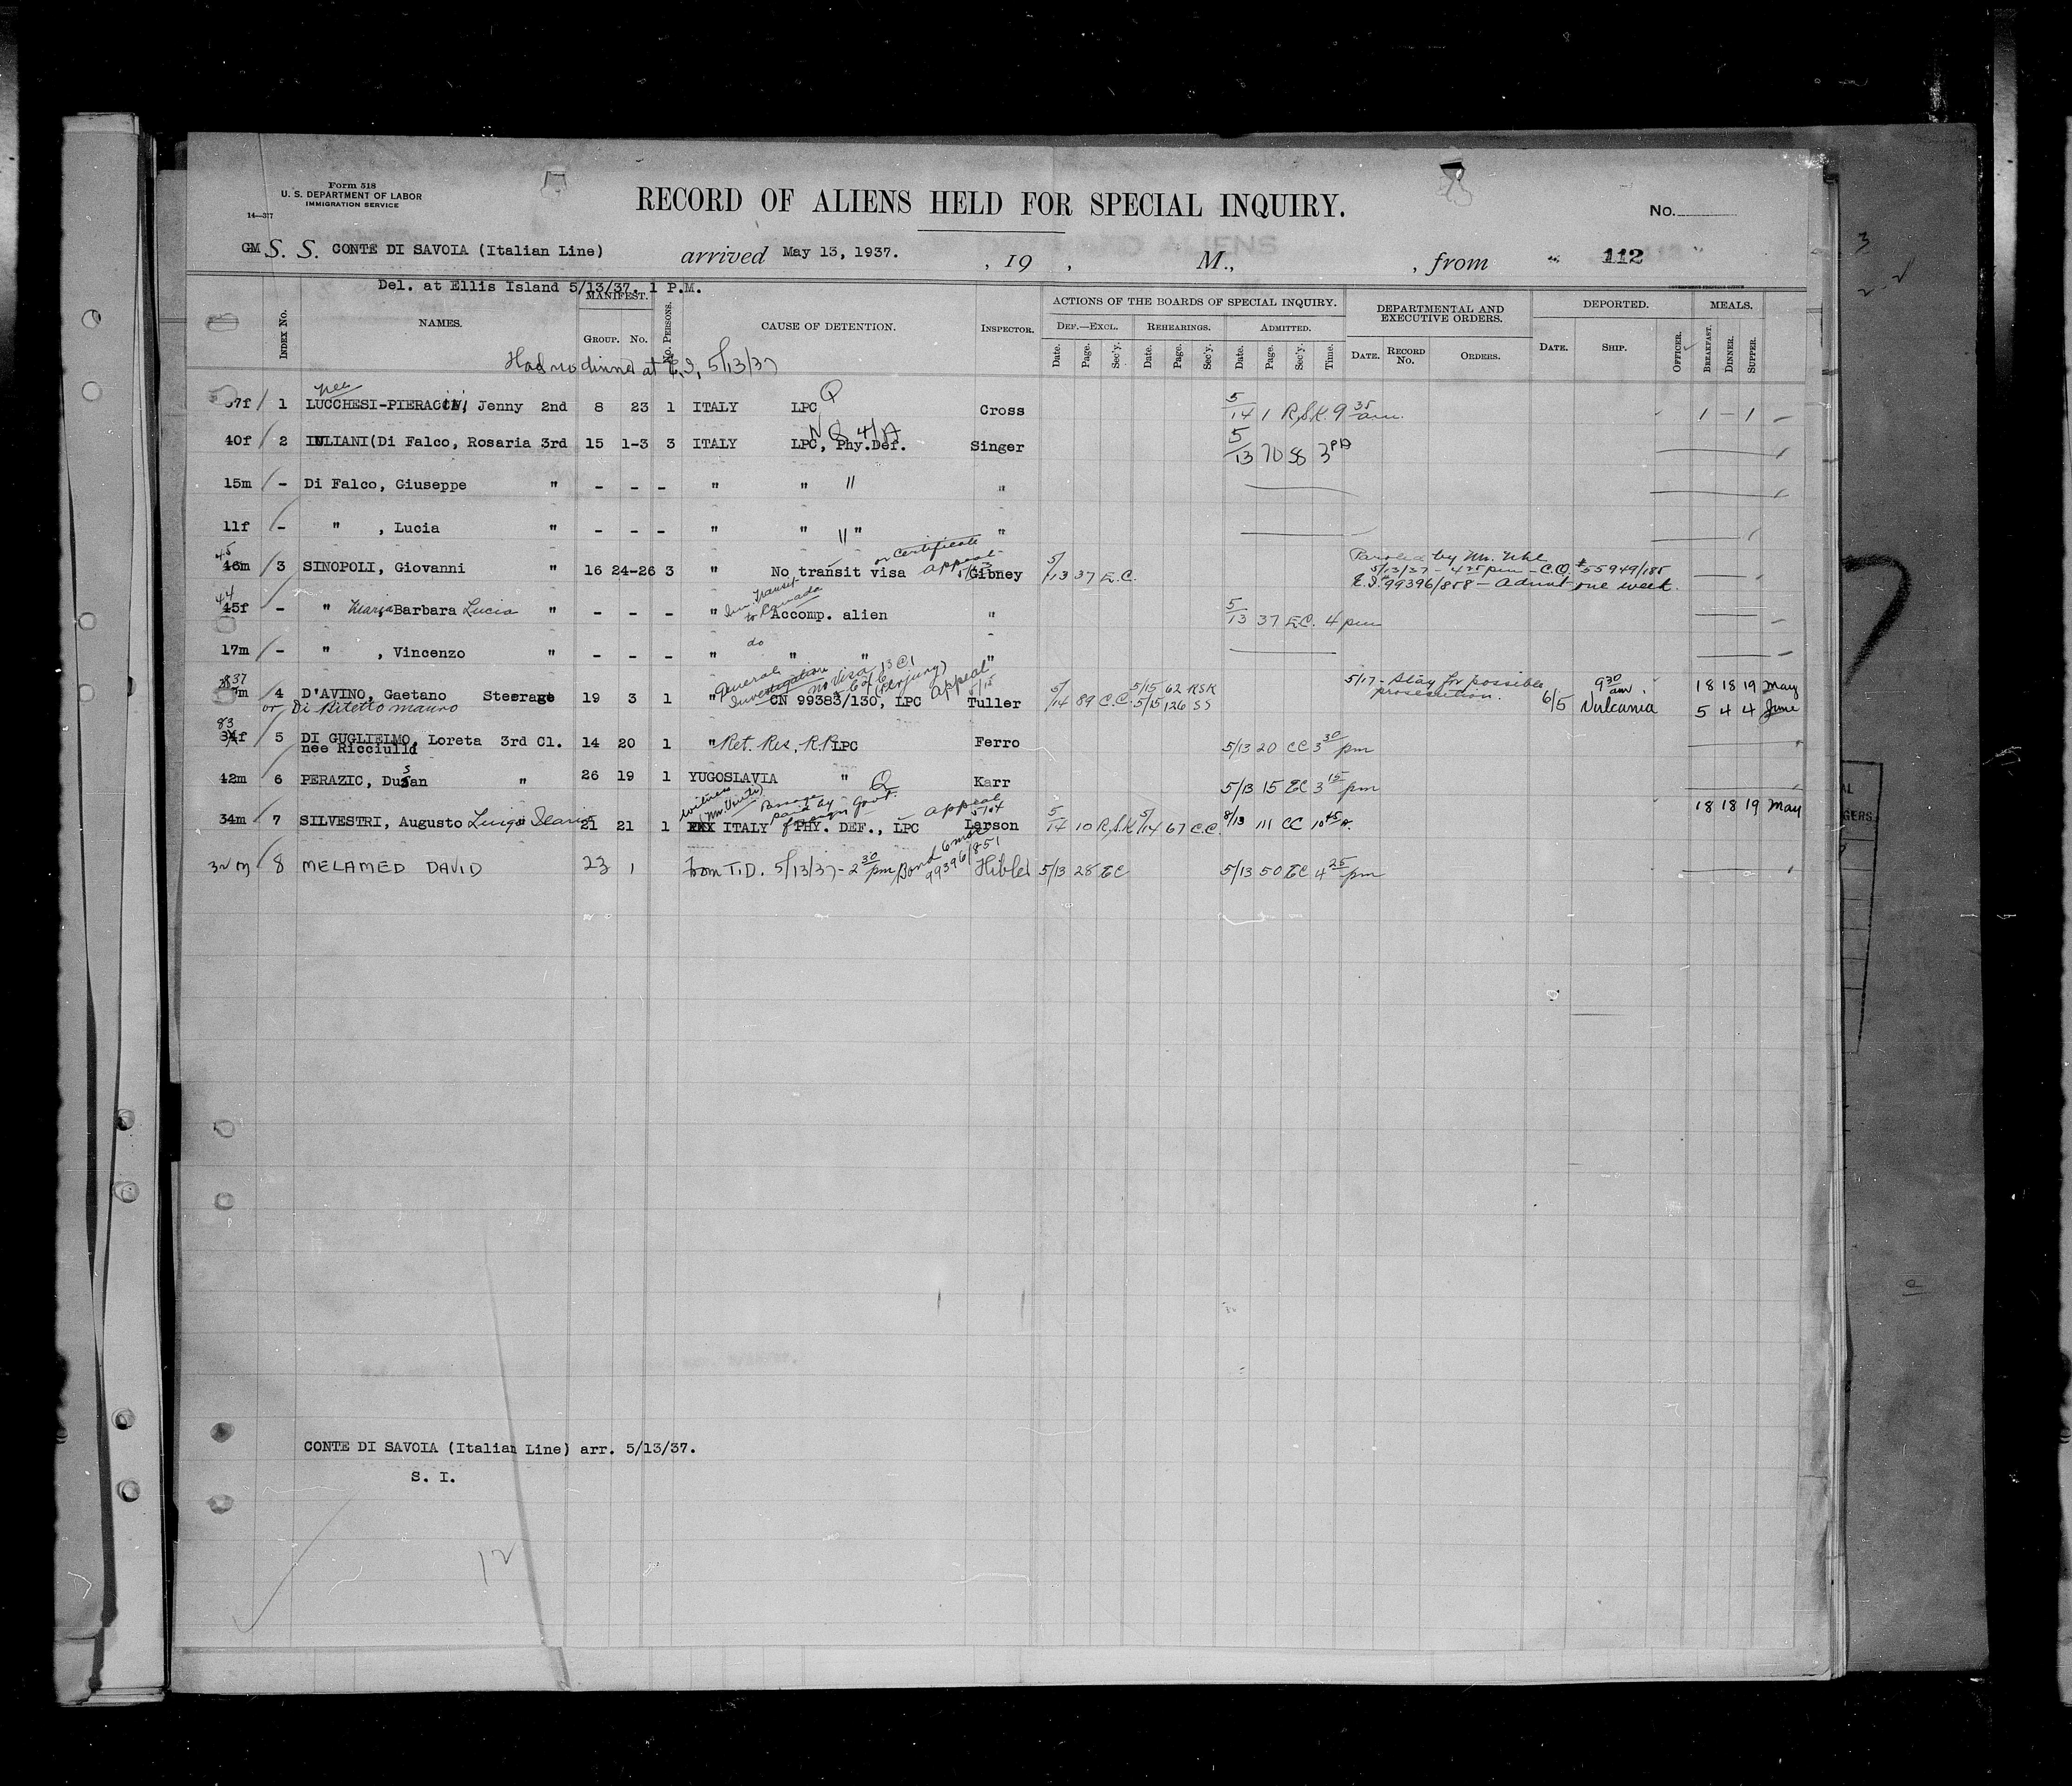 Form 518
U. S. DEPARTMENT OF LABOR
IMMIGRATION SERVICE
14—317
RECORD OF ALIENS HELD FOR SPECIAL INQUIRY.
No.
GM S. S. CONTE DI SAVOIA (Italian Line) arrived May 13, 1937. , 19 , M., , from 112
Del. at Ellis Island 5/13/37. 1 P.M.
INDEX No. NAMES. MANIFEST. GROUP. No. No. PERSONS. CAUSE OF DETENTION. INSPECTOR. ACTIONS OF THE BOARDS OF SPECIAL INQUIRY. DEPARTMENTAL AND EXECUTIVE ORDERS. DEPORTED. MEALS.
DEF.—EXCL. REHEARINGS. ADMITTED.
Date. Page. Sec'y. Date. Page. Sec'y. Date. Page. Sec'y. Time. DATE. RECORD No. ORDERS. DATE. SHIP. OFFICER. BREAKFAST. DINNER. SUPPER.
Had no dinner at E.I. 5/13/37
nee
37f 1 LUCCHESI-PIERACCINI, Jenny 2nd 8 23 1 ITALY LPC Q Cross 5/14 1 R.S.K. 9 35 am. 1 — 1
40f 2 IULIANI(Di Falco, Rosaria 3rd 15 1-3 3 ITALY LPC, Phy.Def. Singer 5/13 70 SS 3 PM
15m - Di Falco, Giuseppe " - - - " " " "
11f - " , Lucia " - - - " " " "
or certificate
45
46m 3 SINOPOLI, Giovanni " 16 24-26 3 " No transit visa appeal 5/13 Gibney 5/13 37 E.C. Paroled by Mr. Uhl
5/13/37 - 4 25 pm - C.O. #55949/185
E.I. 99396/858 - Admit one week.
44
45f - " Maria Barbara Lucia " - - - " In transit to Canada Accomp. alien " 5/13 37 E.C. 4 pm
17m - " , Vincenzo " - - - " do " " "
General Investigation no visa 13 C1 (Perjury) appeal 5/15
37m 4 D'AVINO, Gaetano Steerage 19 3 1 " CN 99383/130, LPC Tuller 5/14 89 C.C. 5/15 62 RSK 5/17 - Stay for possible prosecution. 6/5 9 30 am Vulcania 18 18 19 May
or Di Ritetto Mauro 5/15 126 SS 5 4 4 June
34f 5 DI GUGLIELMO, Loreta 3rd Cl. 14 20 1 " Ret. Res, R.P. LPC Ferro 5/13 20 CC 3 30 pm
nee Ricciulli
42m 6 PERAZIC, Dusan " 26 19 1 YUGOSLAVIA " Q Karr 5/13 15 EC 3 15 pm
Passage paid by foreign Govt. appeal 5/14
34m 7 SILVESTRI, Augusto Luigi Ilario 21 21 1 ITALY PHY. DEF., LPC Larson 5/14 10 R.S.K 5/14 67 C.C. 8/13 111 CC 10 45 A. 18 18 19 May
32 m 8 MELAMED DAVID 23 1 From T.D. 5/13/37 - 2 30 pm Bond 6 mos 99396/851 Hibler 5/13 28 EC 5/13 50 EC 4 25 pm
CONTE DI SAVOIA (Italian Line) arr. 5/13/37.
S. I.
12